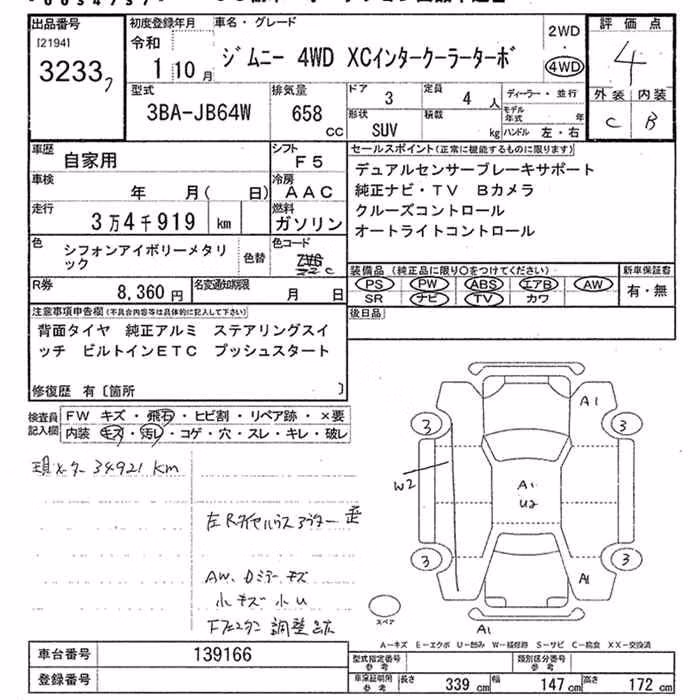 出品番号
[2194]
3233
初度登録年月
令和
1 10 月
車名・グレード
ジムニー 4WD XCインタークーラーターボ
2WD
4WD
評価点
4
外装 内装
C B
型式
3BA-JB64W
排気量
658
CC
ドア
3
定員
4 人
形状
SUV
積載
kg
ディーラー・並行
モデル年式 年
ハンドル 左・右
車歴
自家用
シフト
F5
車検
年 月( 日)
冷房
AAC
走行
3万4千919 km
燃料
ガソリン
色
シフォンアイボリーメタリック
色替
色コード
R券
8,360 円
名変通知期限
月 日
セールスポイント(正常に機能するものに限ります)
デュアルセンサーブレーキサポート
純正ナビ・TV Bカメラ
クルーズコントロール
オートライトコントロール
装備品 (純正品に限り○をつけてください)
PS PW ABS エアB AW
SR ナビ TV カワ
新車保証書
有・無
後日品
注意事項申告欄(不具合内容等は具体的に記入して下さい)
背面タイヤ 純正アルミ ステアリングスイ
ッチ ビルトインETC プッシュスタート
修復歴 有〔箇所 〕
検査員記入欄
FW キズ・飛石・ヒビ割・リペア跡・×要
内装 キズ・汚レ・コゲ・穴・スレ・キレ・破レ
現メーター 34921 km
AW、Dミラーキズ
小キズ小U
調整
A1
3 3
W2
A1
U2
3 3
A1
A1
スペア
A-キズ E-エクボ U-凹み W-補修跡 S-サビ C-腐食 XX-交換済
車台番号
139166
登録番号
型式指定番号
参考
類別区分番号
参考
車庫証明用
参考
長さ 339 cm
幅 147 cm
高さ 172 cm